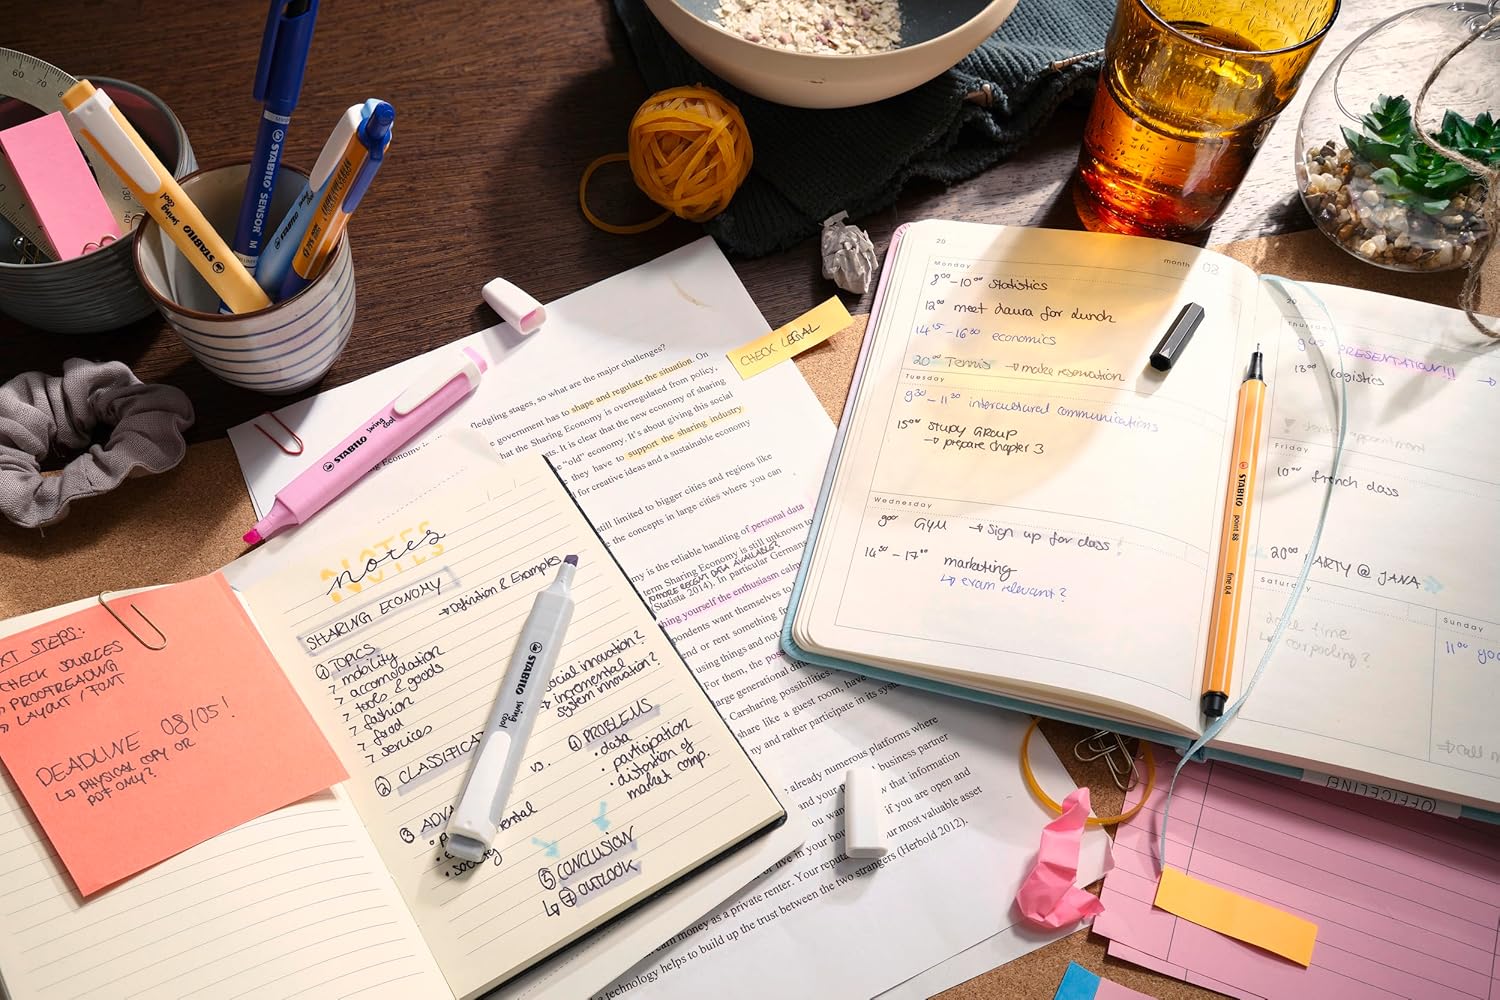 60
70
130
140
0
STABILO
swing cool
STABILO SENSOR M
STABILO
NEXT STEPS:
CHECK SOURCES
PROOFREADING
LAYOUT / FONT
DEADLINE 08/05!
↳ PHYSICAL COPY OR
PDF ONLY?
STABILO swing cool
NOTES
notes
SHARING ECONOMY
→ Definition & Examples
① TOPICS
7 mobility
7 accomodation
7 tools & goods
7 fashion
7 food
7 services
social innovation?
incremental
system innovation?
vs.
② CLASSIFICAT
③ ADVA
society
STABILO swing cool
④ PROBLEMS
• data
• participation
• distortion of
market comp.
⑤ CONCLUSION
↳ ⑦ OUTLOOK
CHECK LEGAL
fledgling stages, so what are the major challenges?
government has to shape and regulate the situation. On
hat the Sharing Economy is overregulated from policy,
ts. It is clear that the new economy of sharing
e "old" economy. It's about giving this social
they have to support the sharing industry
l for creative ideas and a sustainable economy
still limited to bigger cities and regions like
e the concepts in large cities where you can
my is the reliable handling of personal data
term Sharing Economy is still unknown to
MORE RECENT DATA AVAILABLE?
(Statista 2014). In particular Germans
hing yourself the enthusiasm calm
pondents want themselves to
nd or rent something fr
using things and not
For them, the pos
large generational differ
Carsharing possibilities.
share like a guest room, have
ny and rather participate in its sys
already numerous platforms where
and your business partner
ou wan that information
your hou if you are open and
or live in your ur most valuable asset
earn money as a private renter. Your reputa
technology helps to build up the trust between the two strangers (Herbold 2012).
20
month 03
Monday
8⁰⁰-10⁰⁰ statistics
12⁰⁰ meet Laura for lunch
14¹⁵-16³⁰ economics
20⁰⁰ Tennis → make reservation
Tuesday
9³⁰-11³⁰ intercultured communications
15⁰⁰ STUDY GROUP
→ prepare chapter 3
Wednesday
9⁰⁰ GYM → Sign up for class!
14³⁰-17⁰⁰ marketing
↳ exam relevant?
STABILO point 88 fine 0,4
20
Thursday
9⁴⁵ PRESENTATION!!! →
13⁰⁰ logistics
Friday
10⁰⁰ french class
20⁰⁰ PARTY @ JANA
Saturday
time
↳ carpooling?
Sunday
11⁰⁰
OFFICELINE